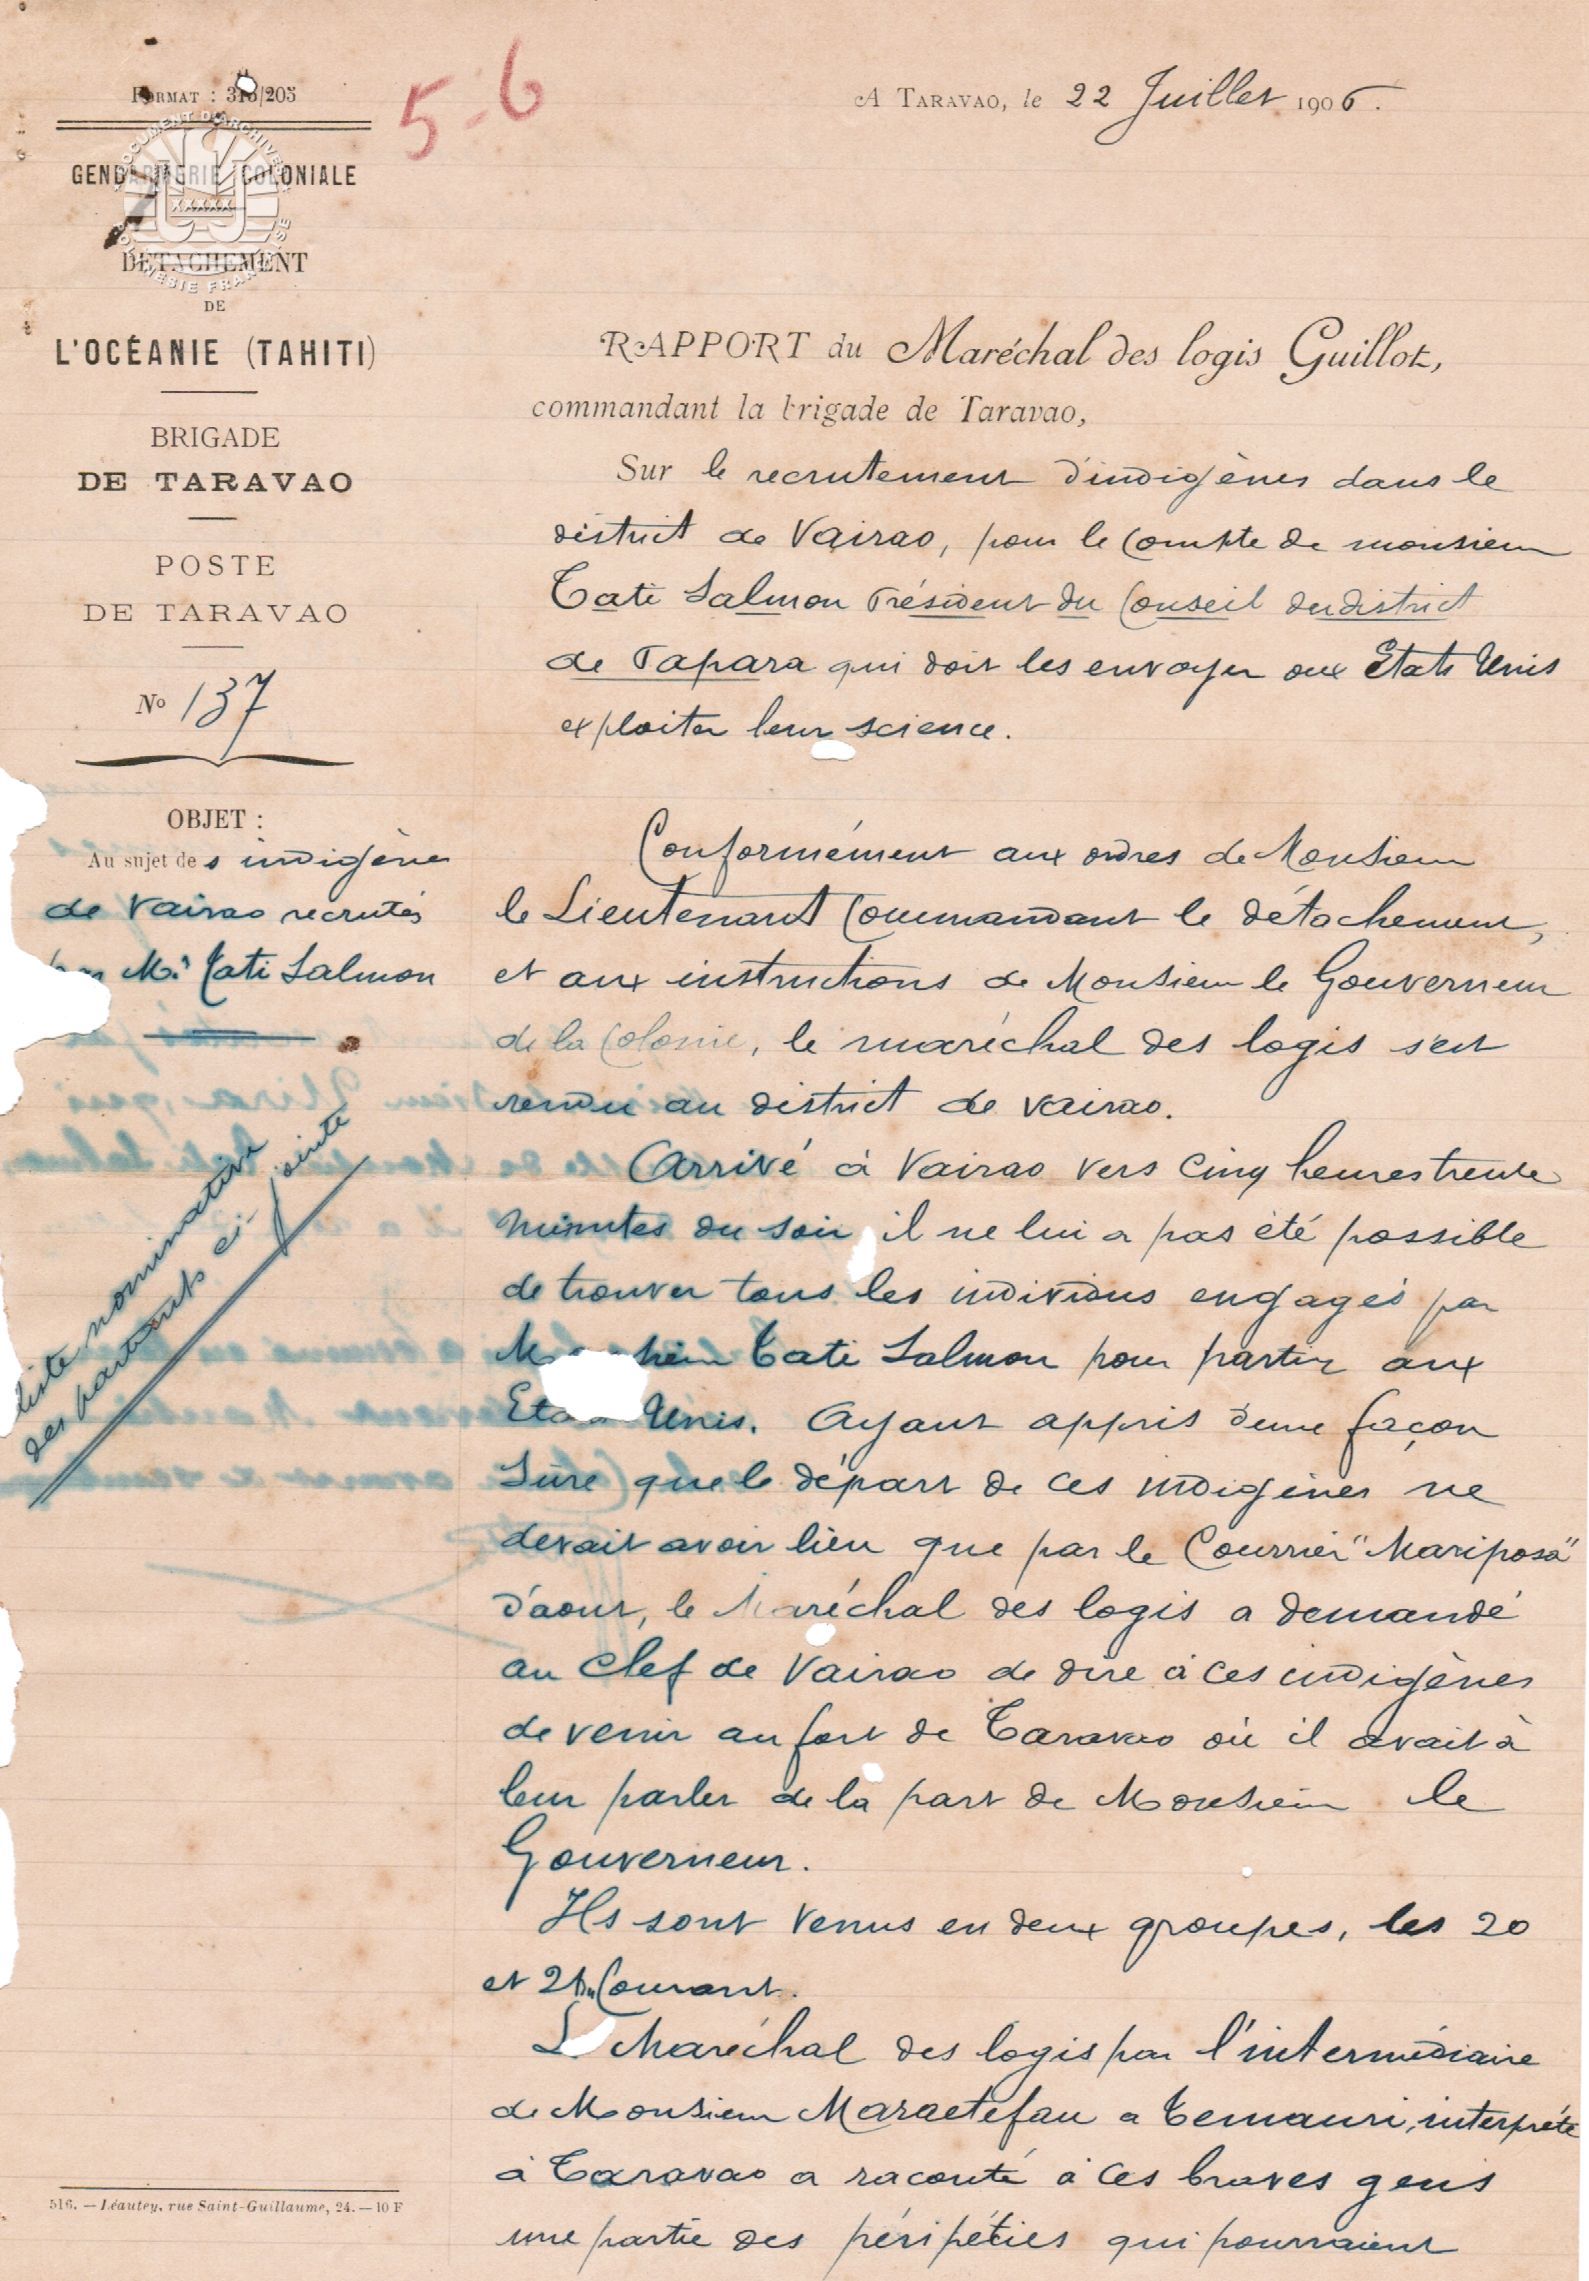 FORMAT : 315/205
5-6
A TARAVAO, le 22 Juillet 1906.
DOCUMENT D'ARCHIVES
POLYNESIE FRANCAISE
GENDARMERIE COLONIALE
DÉTACHEMENT
DE
L'OCÉANIE (TAHITI)
BRIGADE
DE TARAVAO
POSTE
DE TARAVAO
No 137
OBJET :
Au sujet des indigènes
de Vairao recrutés
par Mr Tati Salmon
liste nominative
des partants ci-jointe
RAPPORT du Maréchal des logis Guillot,
commandant la brigade de Taravao,
Sur le recrutement d'indigènes dans le
district de Vairao, pour le compte de monsieur
Tati Salmon Président du Conseil du district
de Papara qui doit les envoyer aux Etats Unis
exploiter leur science.
Conformément aux ordres de Monsieur
le Lieutenant Commandant le détachement,
et aux instructions de Monsieur le Gouverneur
de la Colonie, le maréchal des logis s'est
rendu au district de Vairao.
Arrivé à Vairao vers cinq heures trente
minutes du soir il ne lui a pas été possible
de trouver tous les individus engagés par
Monsieur Tati Salmon pour partir aux
Etats Unis. Ayant appris d'une façon
sûre que le départ de ces indigènes ne
devait avoir lieu que par le Courrier "Mariposa"
d'aout, le Maréchal des logis a demandé
au chef de Vairao de dire à ces indigènes
de venir au fort de Taravao où il avait à
leur parler de la part de Monsieur le
Gouverneur.
Ils sont venus en deux groupes, les 20
et 21 du Courant.
Le Maréchal des logis par l'intermédiaire
de Monsieur Maraetefau a Temauri, interprète
à Taravao a raconté à ces braves gens
une partie des péripéties qui pourraient
516. — Léautey, rue Saint-Guillaume, 24. — 10 F